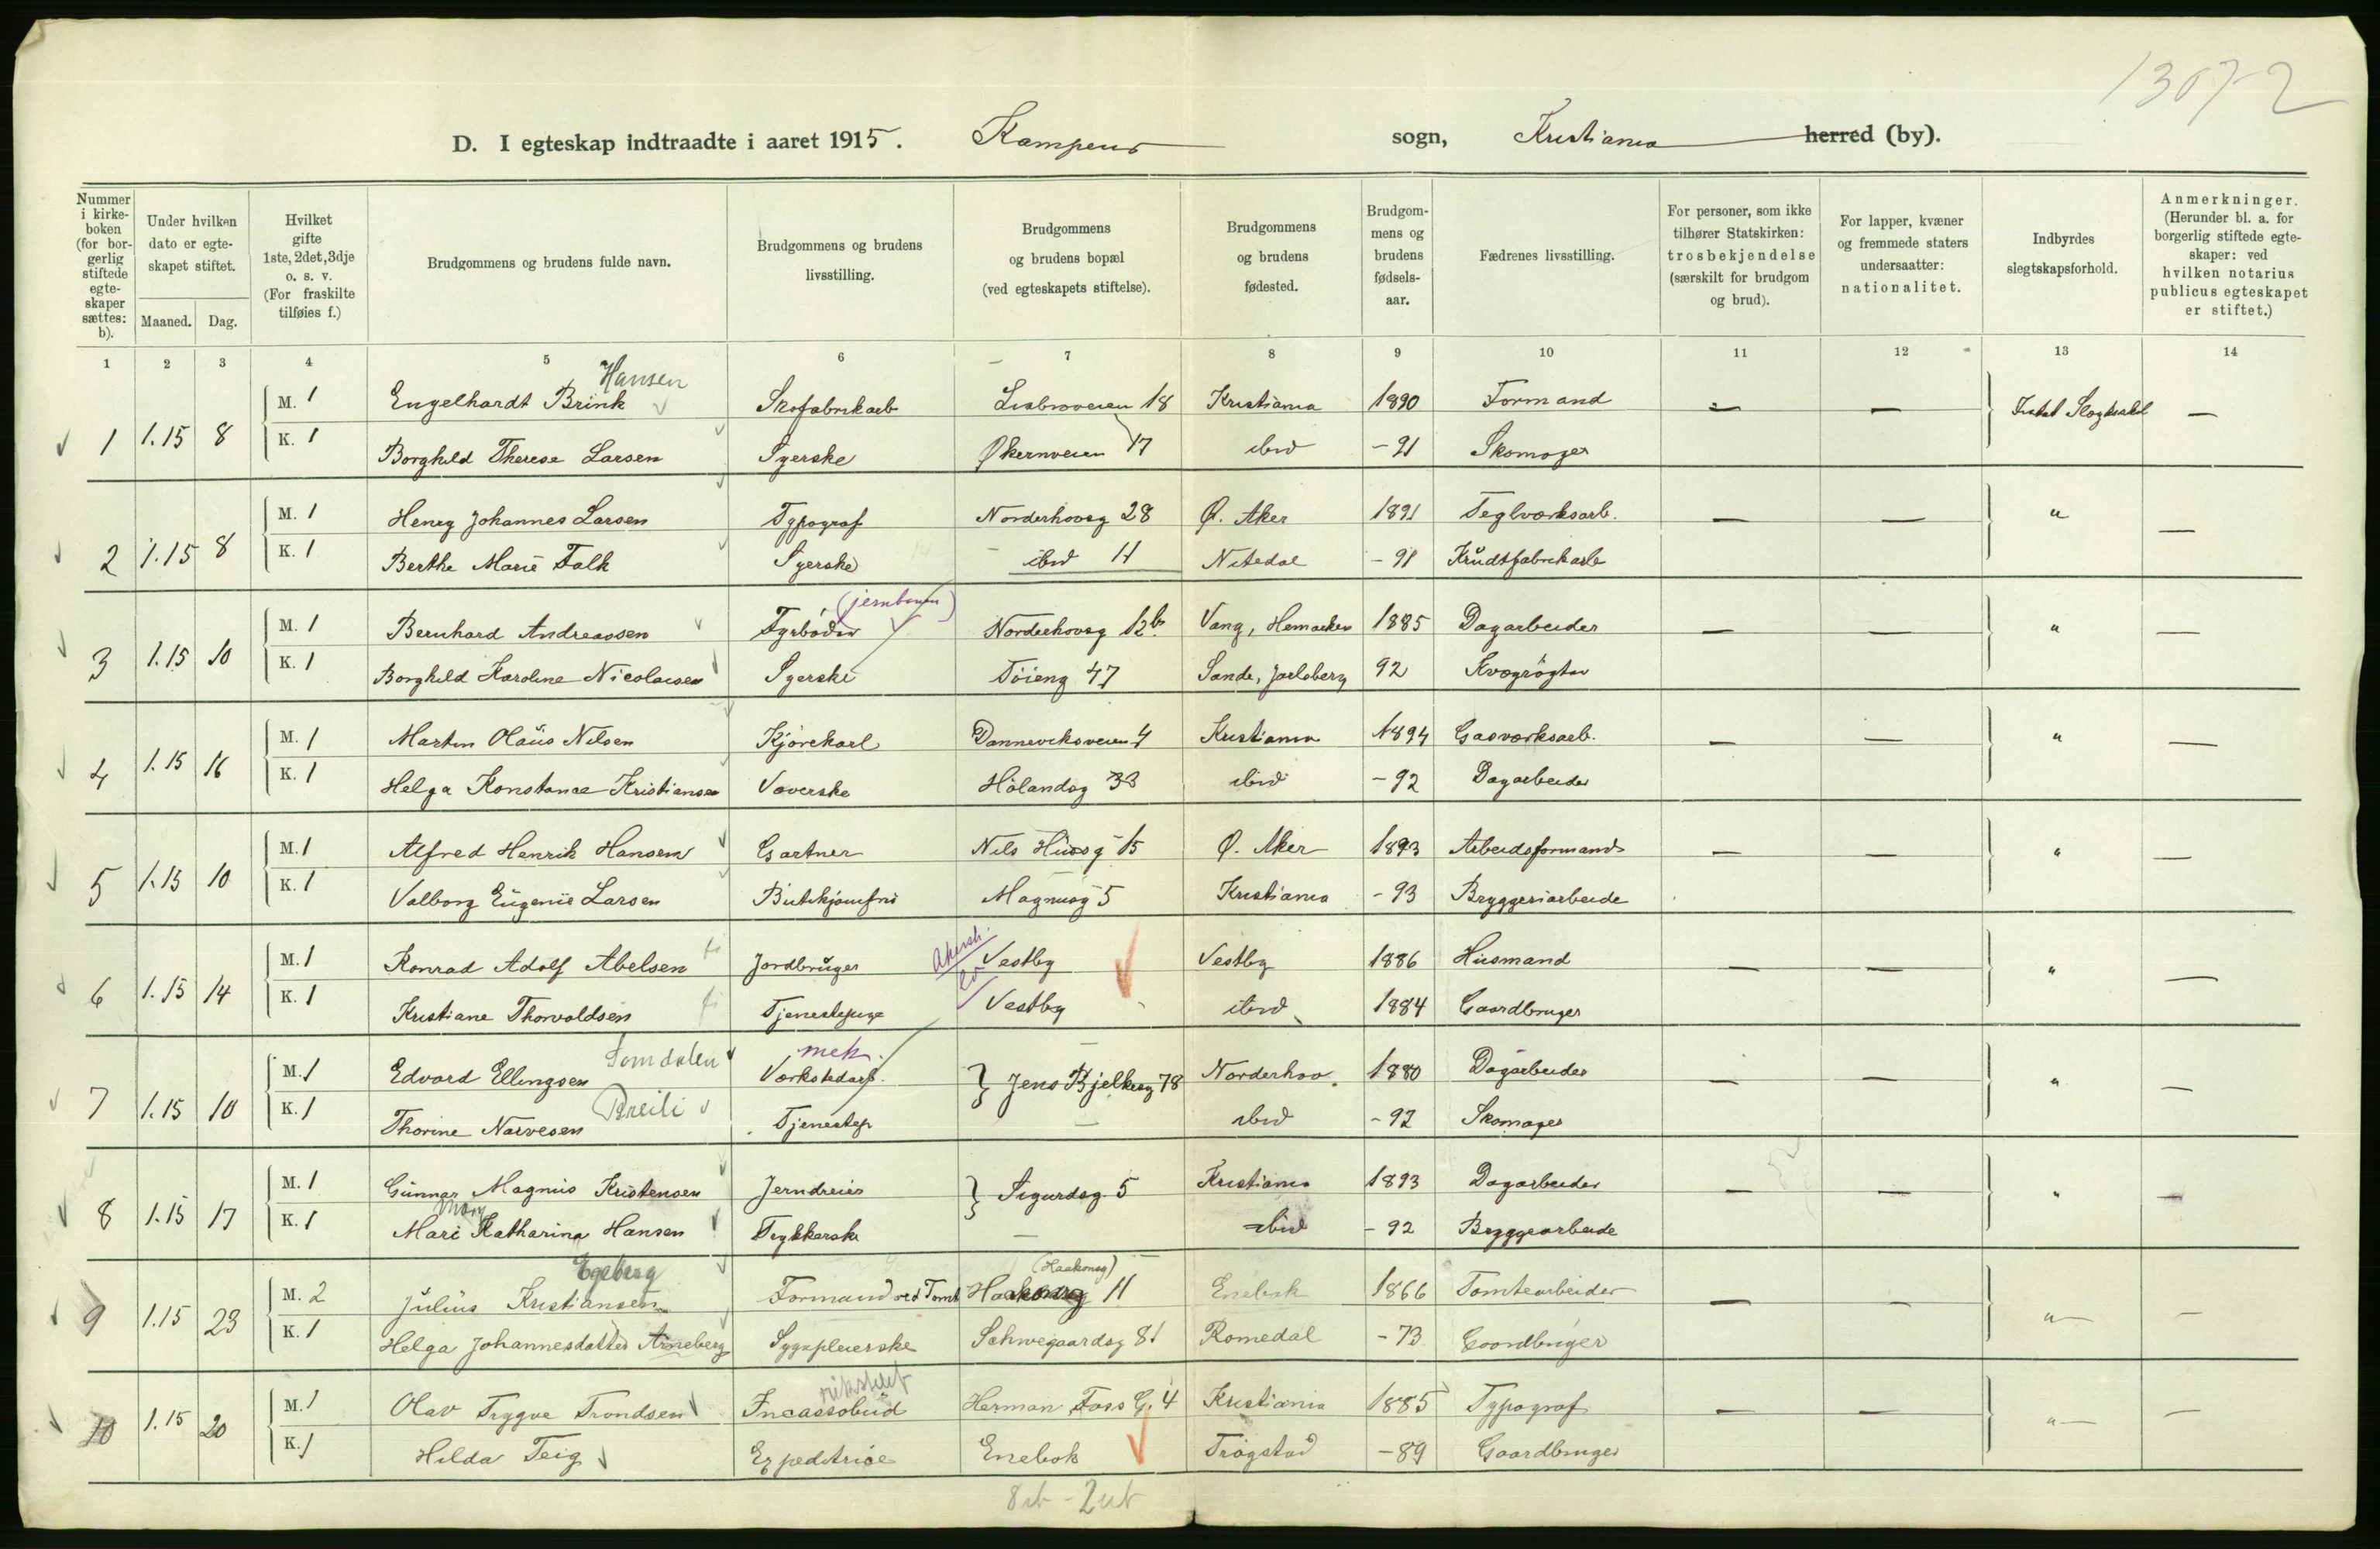 1307-2
D. I egteskap indtraadte i aaret 1915. Kampens sogn, Kristiania herred (by).
Nummer i kirkeboken (for borgerlig stiftede egteskaper sættes: b).
Under hvilken dato er egteskapet stiftet.
Maaned. Dag.
Hvilket gifte 1ste, 2det, 3dje o. s. v. (For fraskilte tilføies f.)
Brudgommens og brudens fulde navn.
Brudgommens og brudens livsstilling.
Brudgommens og brudens bopæl (ved egteskapets stiftelse).
Brudgommens og brudens fødested.
Brudgommens og brudens fødselsaar.
Fædrenes livsstilling.
For personer, som ikke tilhører Statskirken: trosbekjendelse (særskilt for brudgom og brud).
For lapper, kvæner og fremmede staters undersaatter: nationalitet.
Indbyrdes slegtskapsforhold.
Anmerkninger. (Herunder bl. a. for borgerlig stiftede egteskaper: ved hvilken notarius publicus egteskapet er stiftet.)
1 2 3 4 5 6 7 8 9 10 11 12 13 14
Hansen
M. 1 Engelhardt Brink Skofabrikarb 18 Kristiania 1890 Formand — — Intet Slegtskab —
1 1.15 8
K. 1 Borghild Therese Larsen Syerske Økernveien 17 ibid - 91 Skomager
M. 1 Henry Johannes Larsen Typograf Norderhovsg 28 Ø. Aker 1891 Teglværksarb. — — " —
2 1.15 8
K. 1 Berthe Marie Falk Syerske ibid 11 Nitedal - 91 Krudtfabrikarb
(jernbanen)
M. 1 Bernhard Andreassen Fyrbøder Norderhovsg 12b Vang, Hemarken 1885 Dagarbeider — — " —
3 1.15 10
K. 1 Borghild Karoline Nicolaisen Syerske Tøieng 47 Sande, Jarlsberg 92 Kvægrøgter
M. 1 Martin Olaus Nilsen Kjørekarl Dannevirksveien 4 Kristiania 1894 Gasværksarb. — — " —
4 1.15 16
K. 1 Helga Konstanse Kristiansen Væverske Hølandsg 33 ibid - 92 Dagarbeider
M. 1 Alfred Henrik Hansen Gartner Nils Hussg 15 Ø. Aker 1893 Arbeidsformand — — " —
5 1.15 10
K. 1 Valborg Eugenie Larsen Butikjomfru Magnusg 5 Kristiania - 93 Bryggeriarbeide
Akersh.
M. 1 Konrad Adolf Abelsen Jordbruger Vestby Vestby 1886 Husmand — — " —
6 1.15 14
K. 1 Kristiane Thorvaldsen Tjenestepige Vestby ibid 1884 Gaardbruger
Somdalen mek.
M. 1 Edvard Ellingsen Værkstedarb. } Jens Bjelkesg 78 Norderhov. 1880 Dagarbeider — — " —
7 1.15 10
Breili
K. 1 Thorine Narvesen Tjenestep — ibid - 92 Skomager
M. 1 Gunnar Magnus Kristensen Jerndreier } Sigurdsg 5 Kristiania 1893 Dagarbeider — — " —
8 1.15 17
Mary
K. 1 Mari Katharina Hansen Trykkerske — ibid - 92 Bryggearbeide
Egeberg (Haakonsg)
M. 2 Julius Kristiansen Formand ved Tomt 11 Enebak 1866 Tomtearbeider — — " —
9 1.15 23
K. 1 Helga Johannesdatter Arneberg Sygepleierske Schwegaardsg 81 Romedal - 73 Gaardbruger
M. 1 Olav Trygve Trondsen Incassobud Herman Foss G. 4 Kristiania 1885 Typograf — — " —
10 1.15 20
K. 1 Hilda Teig Expeditrice Enebak Trøgstad - 89 Gaardbruger